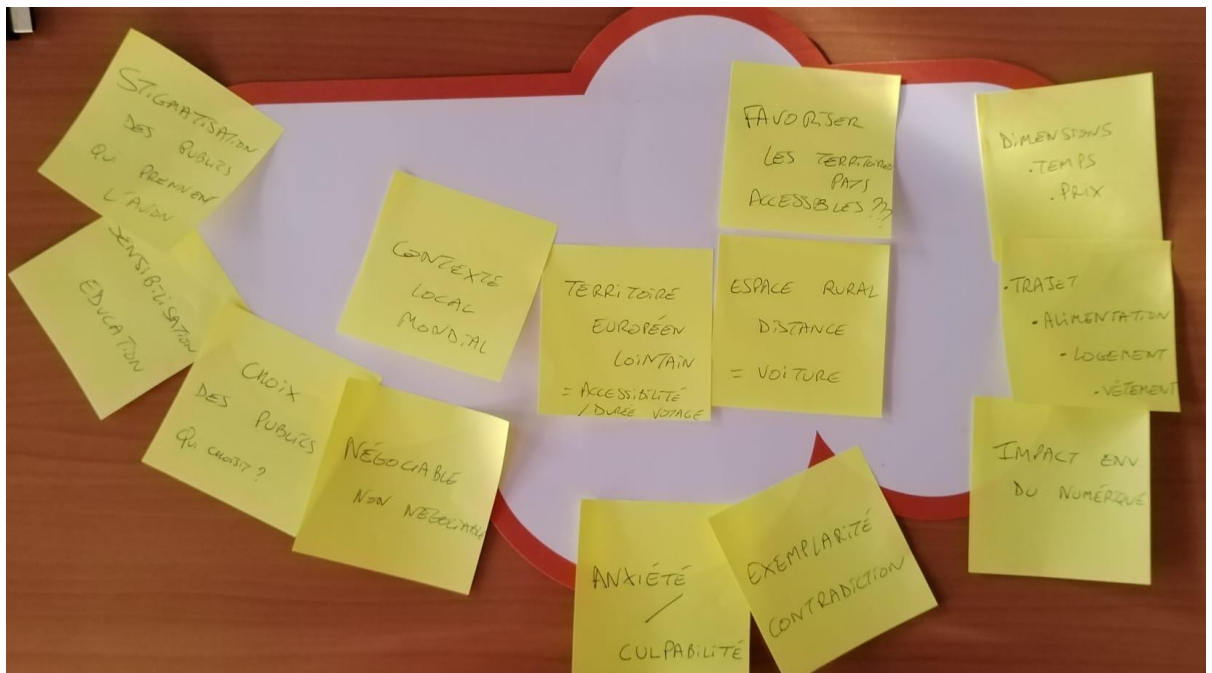 STIGMATISATION
DES PUBLICS
QUI PRENNEN
L'AVION
SENSIBILISATION
EDUCATION
CHOIX
DES PUBLICS
QUI CHOISIT ?
NÉGOCIABLE
NON NÉGOCIABLE
CONTEXTE
LOCAL
MONDIAL
TERRITOIRE
EUROPÉEN
LOINTAIN
= ACCESSIBILITÉ
/ DURÉE VOYAGE
FAVORISER
LES TERRITOIRES
PAYS
ACCESSIBLES ??
ESPACE RURAL
DISTANCE
= VOITURE
ANXIÉTÉ
/
CULPABILITÉ
EXEMPLARITÉ
CONTRADICTION
DIMENSIONS
. TEMPS
. PRIX
. TRAJET
. ALIMENTATION
. LOGEMENT
. VÊTEMENT
IMPACT ENV.
DU NUMÉRIQUE